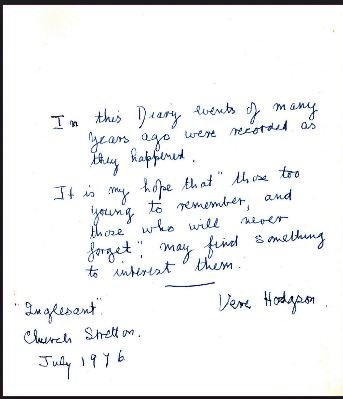 In this Diary events of many
years ago were recorded as
they happened.
It is my hope that "those too
young to remember, and
those who will never
forget", may find something
to interest them.
Vere Hodgson.
"Inglesant".
Church Stretton.
July 1976